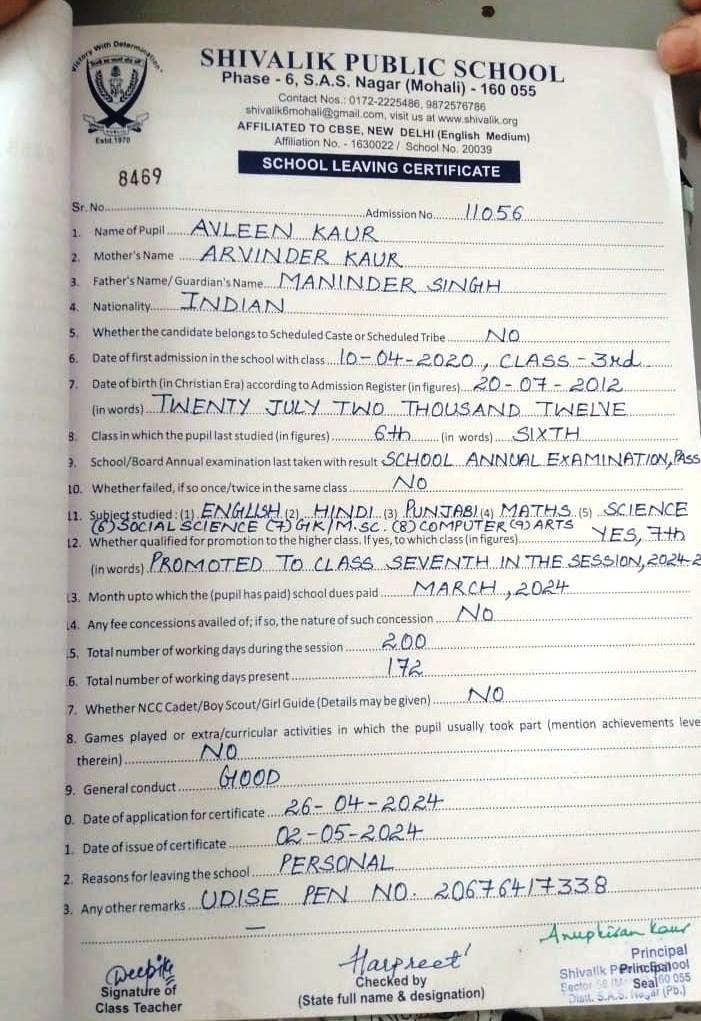 Victory With Determination
Estd.1970
SHIVALIK PUBLIC SCHOOL
Phase - 6, S.A.S. Nagar (Mohali) - 160 055
Contact Nos.: 0172-2225486, 9872576786
shivalik6mohali@gmail.com, visit us at www.shivalik.org
AFFILIATED TO CBSE, NEW DELHI (English Medium)
Affiliation No. - 1630022 / School No. 20039
SCHOOL LEAVING CERTIFICATE
8469
Sr. No. Admission No. 11056
1. Name of Pupil AVLEEN KAUR
2. Mother's Name ARVINDER KAUR
3. Father's Name/ Guardian's Name MANINDER SINGH
4. Nationality INDIAN
5. Whether the candidate belongs to Scheduled Caste or Scheduled Tribe NO
6. Date of first admission in the school with class 10-04-2020, CLASS-3rd
7. Date of birth (in Christian Era) according to Admission Register (in figures) 20-07-2012
(in words) TWENTY JULY TWO THOUSAND TWELVE
8. Class in which the pupil last studied (in figures) 6th (in words) SIXTH
9. School/Board Annual examination last taken with result SCHOOL ANNUAL EXAMINATION, PASS
10. Whether failed, if so once/twice in the same class NO
11. Subject studied : (1) ENGLISH (2) HINDI (3) PUNJABI (4) MATHS (5) SCIENCE
(6) SOCIAL SCIENCE (7) GK/M.SC. (8) COMPUTER (9) ARTS
12. Whether qualified for promotion to the higher class. If yes, to which class (in figures) YES, 7th
(in words) PROMOTED TO CLASS SEVENTH IN THE SESSION, 2024-2
13. Month upto which the (pupil has paid) school dues paid MARCH, 2024
14. Any fee concessions availed of; if so, the nature of such concession NO
5. Total number of working days during the session 200
6. Total number of working days present 172
7. Whether NCC Cadet/Boy Scout/Girl Guide (Details may be given) NO
8. Games played or extra/curricular activities in which the pupil usually took part (mention achievements leve
therein) NO
9. General conduct GOOD
0. Date of application for certificate 26-04-2024
1. Date of issue of certificate 02-05-2024
2. Reasons for leaving the school PERSONAL
3. Any other remarks UDISE PEN NO. 20676417338
Deepika
Signature of
Class Teacher
Harpreet
Checked by
(State full name & designation)
Anupkiran Kaur
Principal
Shivalik P
Principal
Seal
160 055
Distt. S.A.S. Nagar (Pb.)